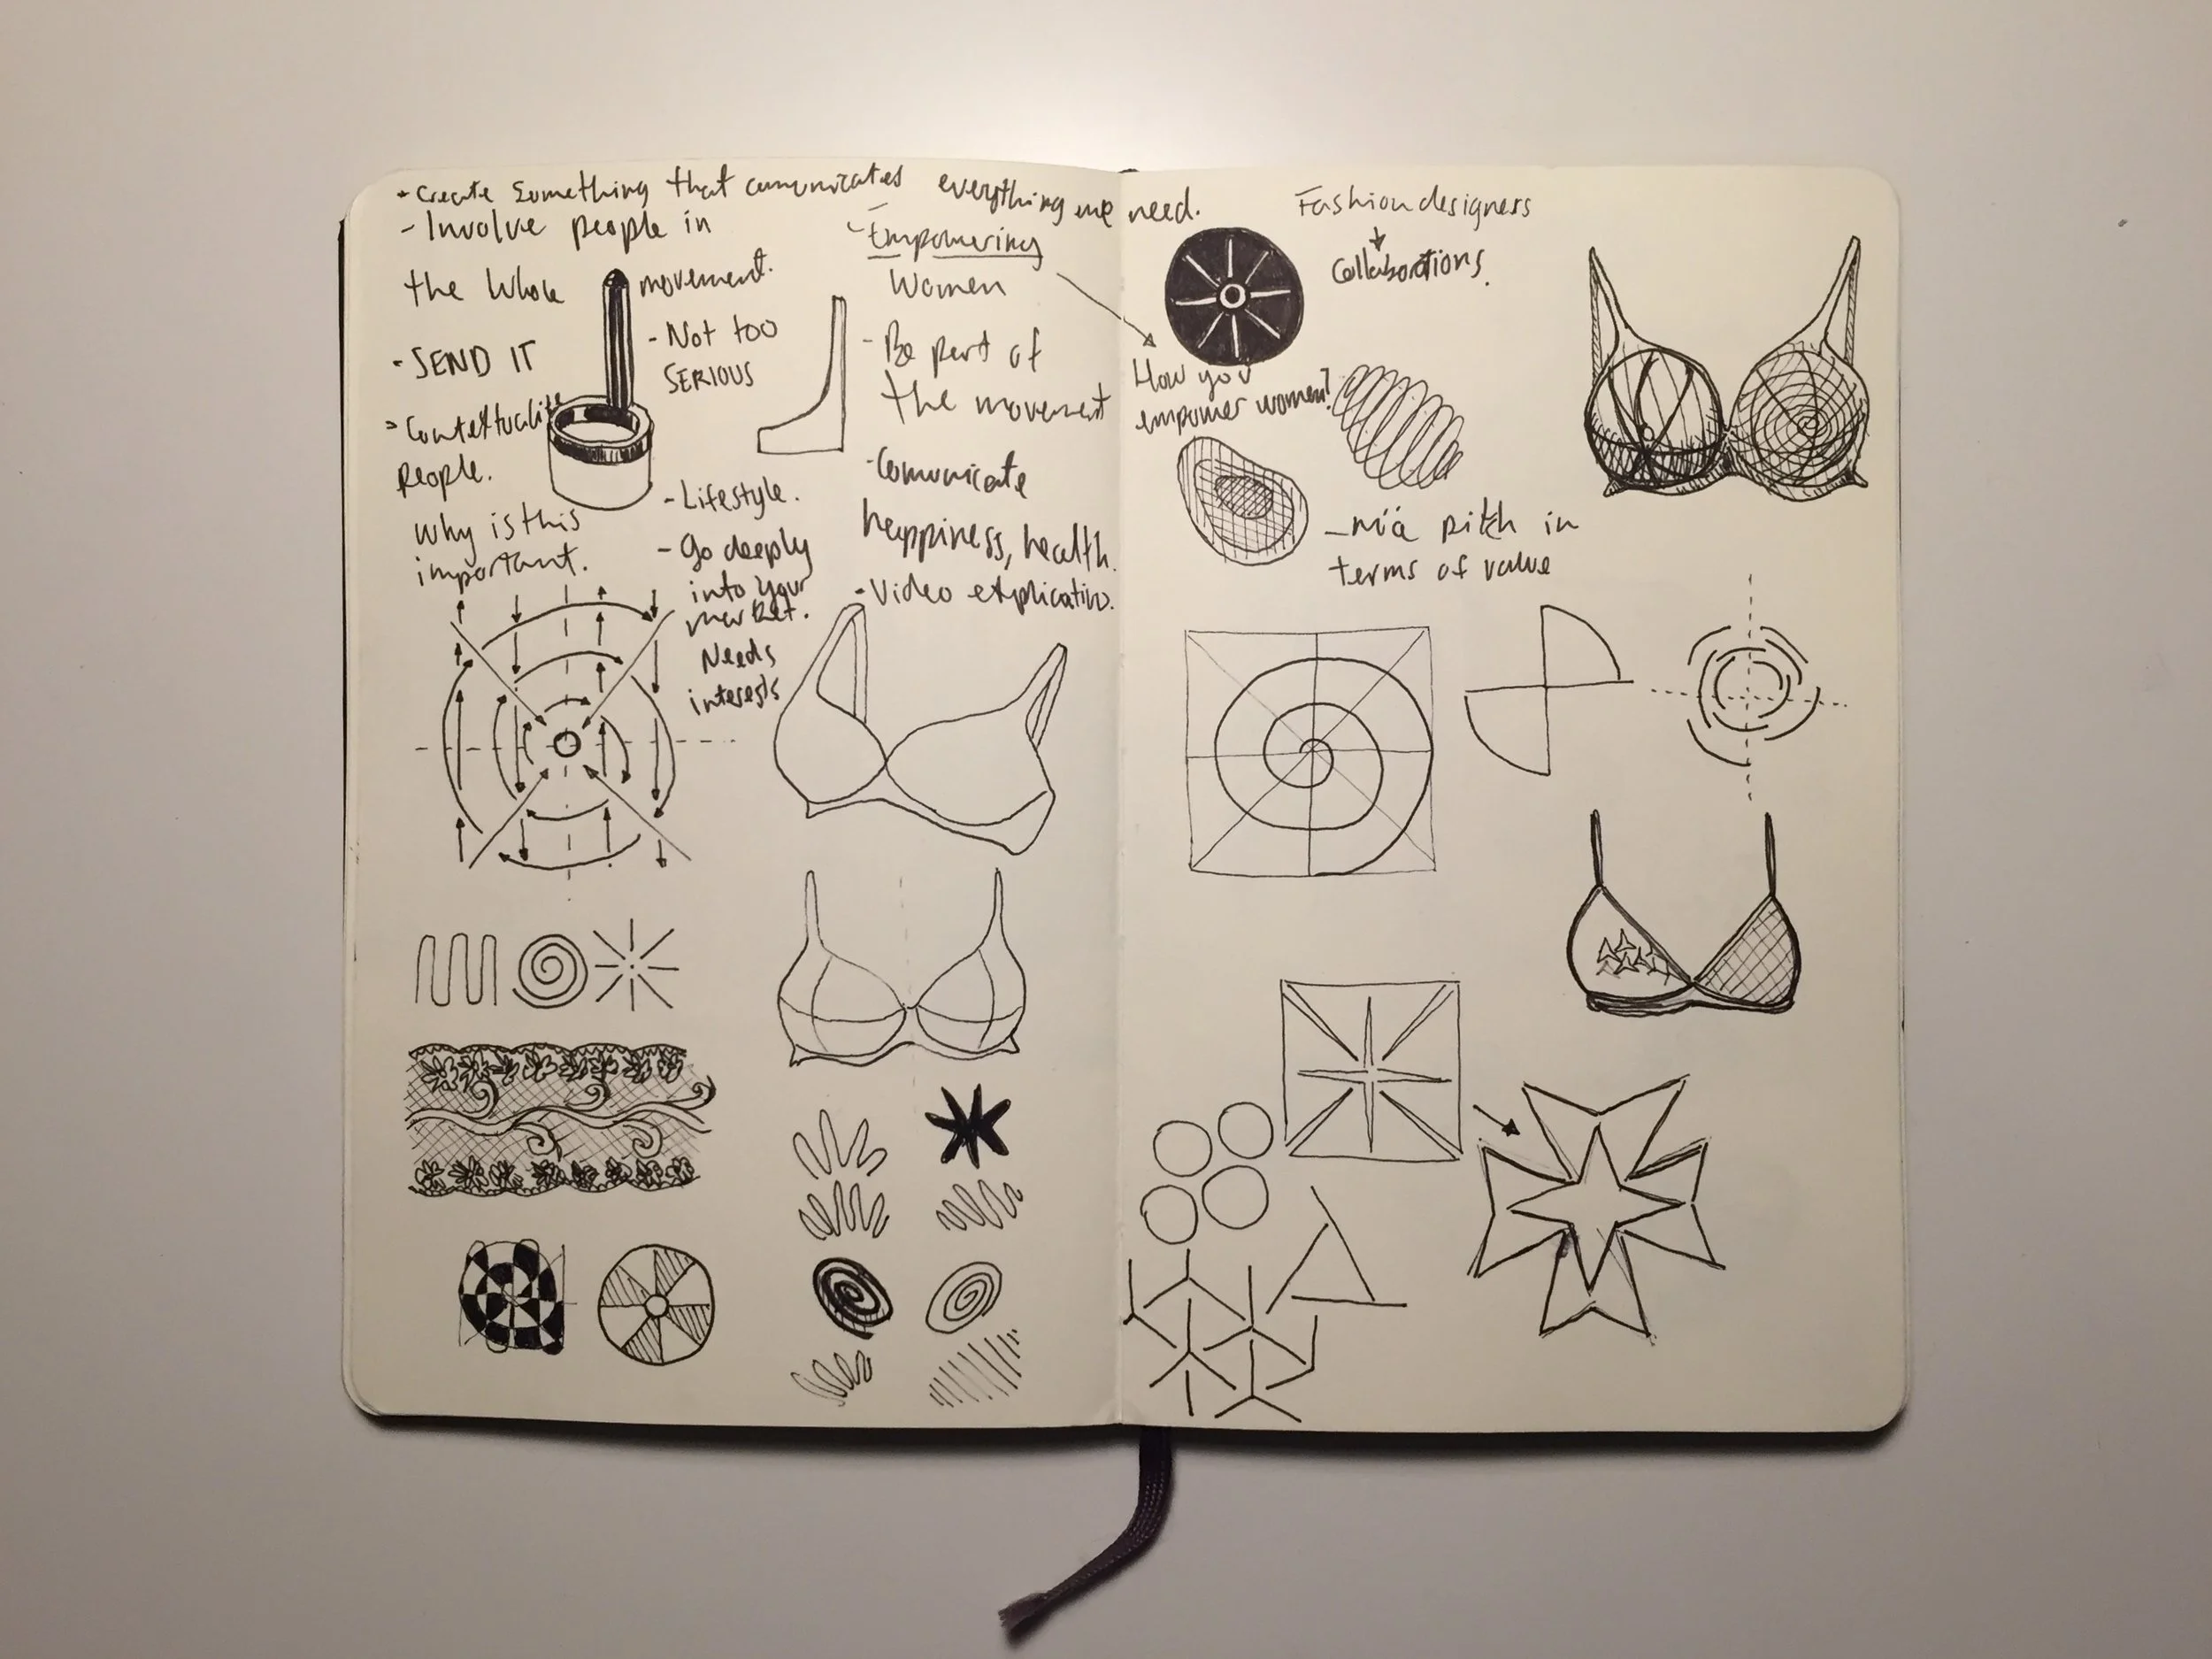 - Create something that comunicates everything we need.
- Involve people in
the whole movement.
- SEND IT
- Contextualize
People.
Why is this
important.
- Not too
SERIOUS
- Lifestyle.
- Go deeply
into your
market.
Needs
interests
- Empowering
Women
- Be part of
the movement
- Comunicate
happiness, health.
- Video explicativo.
Fashion designers
Collaborations.
How you
empower women?
- mía pitch in
terms of value